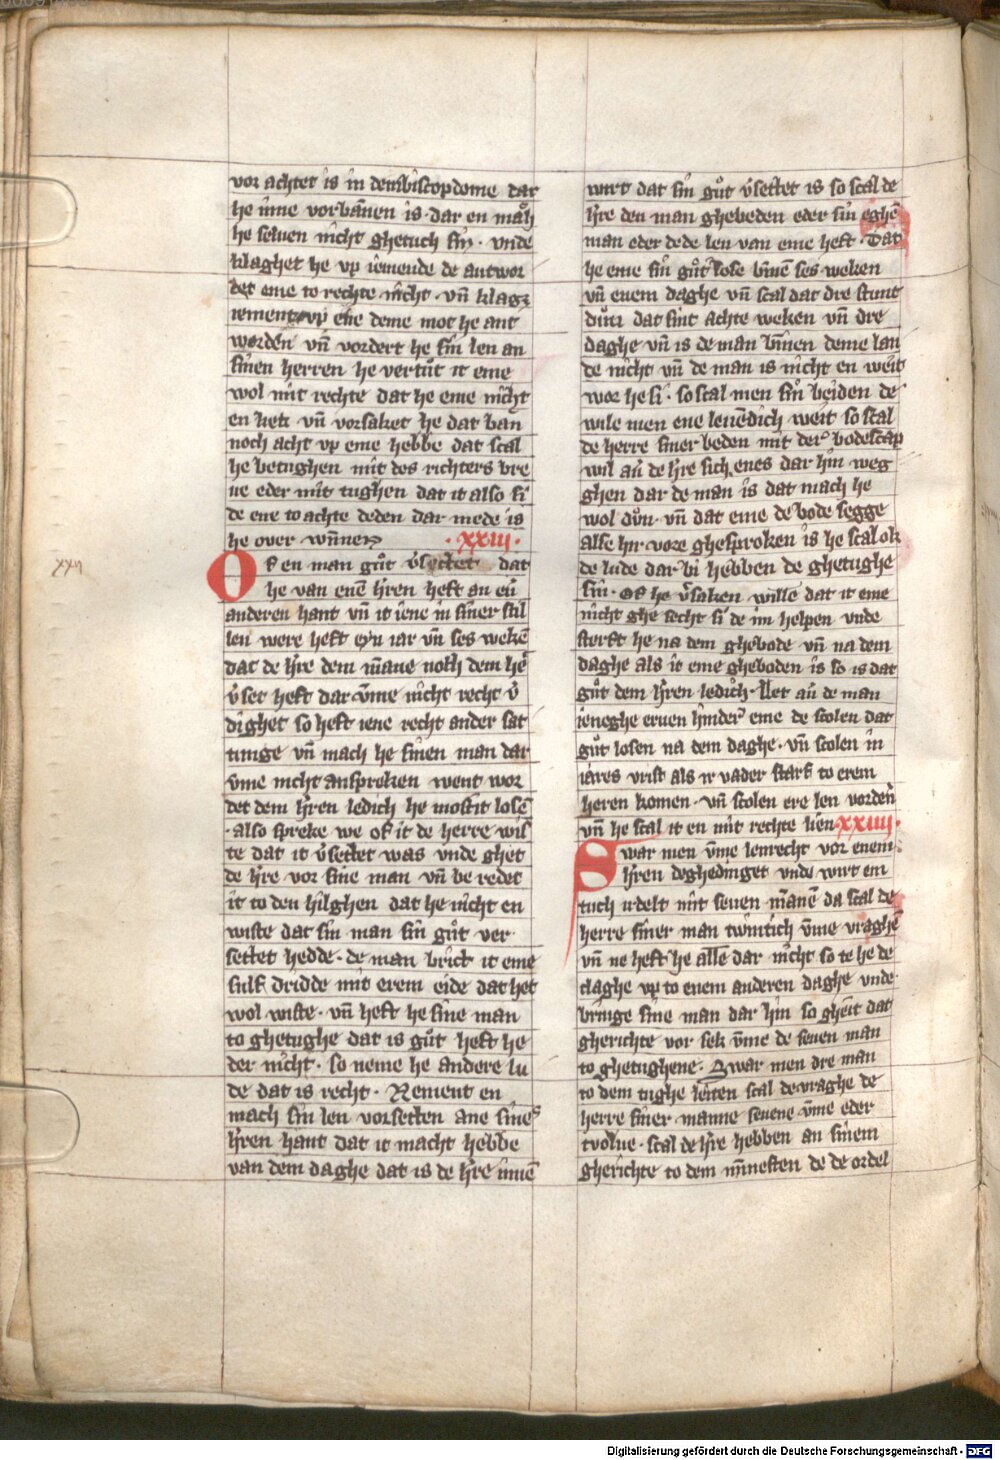 vor achtet is in dem biscopdome dar
he ū̄me vorbānen is · dar en mach
he seluen nicht ghetuch sin · vnde
klaghet he vp iemende de antwor
det eme to rechte nicht · vn̄ klaget
iement vp ene deme mot he ant
worden vn̄ vordert he sin len an
sinen herren he vertůt it eme
wol mit rechte dat he eme nicht
en liet vn̄ vorsaket he dat ban
noch acht vp eme hebbe dat scal
he betughen mit des richters bre
ue eder mit tughen dat it also si
de ene to achte deden dar mede is
he over wūnen · xxiii ·
Of en man gůt v̄settet dat
he van enē h̄ren heft an eū
anderen hant vn̄ it iene in siner stil
len were heft eyn iar vn̄ ses wekē
dat de h̄re dem māne noch dem he
v̄set heft dar v̄me nicht recht v̄
dighet so heft iene recht ander sat
tunge vn̄ mach he sinen man dar
v̄me nicht anspreken went wor
det dem h̄ren ledich he mostit losē
· also spreke we of it de herre wis
te dat it v̄settet was vnde ghet
de h̄re vor sine man vn̄ be redet
it to den hilghen dat he nicht en
wiste dat sin man sin gůt ver
settet hedde · de man brict it eme
sulf dridde mit erem eide dat het
wol wiste · vn̄ heft he sine man
to ghetughe dat is gůt heft he
der nicht · so neme he andere lu
de dat is recht · Nement en
mach sin len vorsetten ane sines
h̄ren hant dat it macht hebbe
van dem daghe dat is de h̄re innē
wirt dat sin gůt v̄settet is so scal de
h̄re den man ghebeden eder sin eghē
man eder de de len van eme heft · Dat
he eme sin gůt lose bīnē ses weken
vn̄ enem daghe vn̄ scal dat dre stunt
důn dat sint achte weken vn̄ dre
daghe vn̄ is de man bīnen deme lan
de nicht vn̄ de man is nicht en weit
wor he si · so scal men sin beiden de
wile men ene leuēdich weit so scal
de herre siner beden mit der bodescap
wil au̅ de h̄re sich enes dar hin weg
ghen dar de man is dat mach he
wol důn · vn̄ dat eme de bode segge
alse hir vore ghesproken is he scal ok
de lude dar bi hebben de ghetughe
sin · Of he v̄saken wille dat it eme
nicht ghe secht si de im helpen vnde
sterft he na dem ghebode vn̄ na dem
daghe als it eme gheboden is so is dat
gůt dem h̄ren ledich · Let au̅ de man
ieneghe eruen hinder eme de scolen dat
gůt losen na dem daghe · vn̄ scolen in
iares vrist als ir vader starf to erem
heren komen · vn̄ scolen ere len vorderē
vn̄ he scal it en mit rechte lien · xxiiii ·
Swar men v̄me lenrecht vor enem
h̄ren deghedinget vnde wirt em
tuch irdelt mit seuen mānē da scal de
herre siner man twintich v̄me vraghē
vn̄ ne heft he alle dar nicht so te he de
claghe vp to enem anderen daghe vnde
bringe sine man dar hin so gheit dat
gherichte vor sek v̄me de seuen man
to ghetughene · Swar men dre man
to dem tughe leiten scal de vraghe de
herre siner manne seuene v̄me eder
tvolue · scal de h̄re hebben an sinem
gherichte to dem minnesten de de ordel
xxij
Digitalisierung gefördert durch die Deutsche Forschungsgemeinschaft - DFG